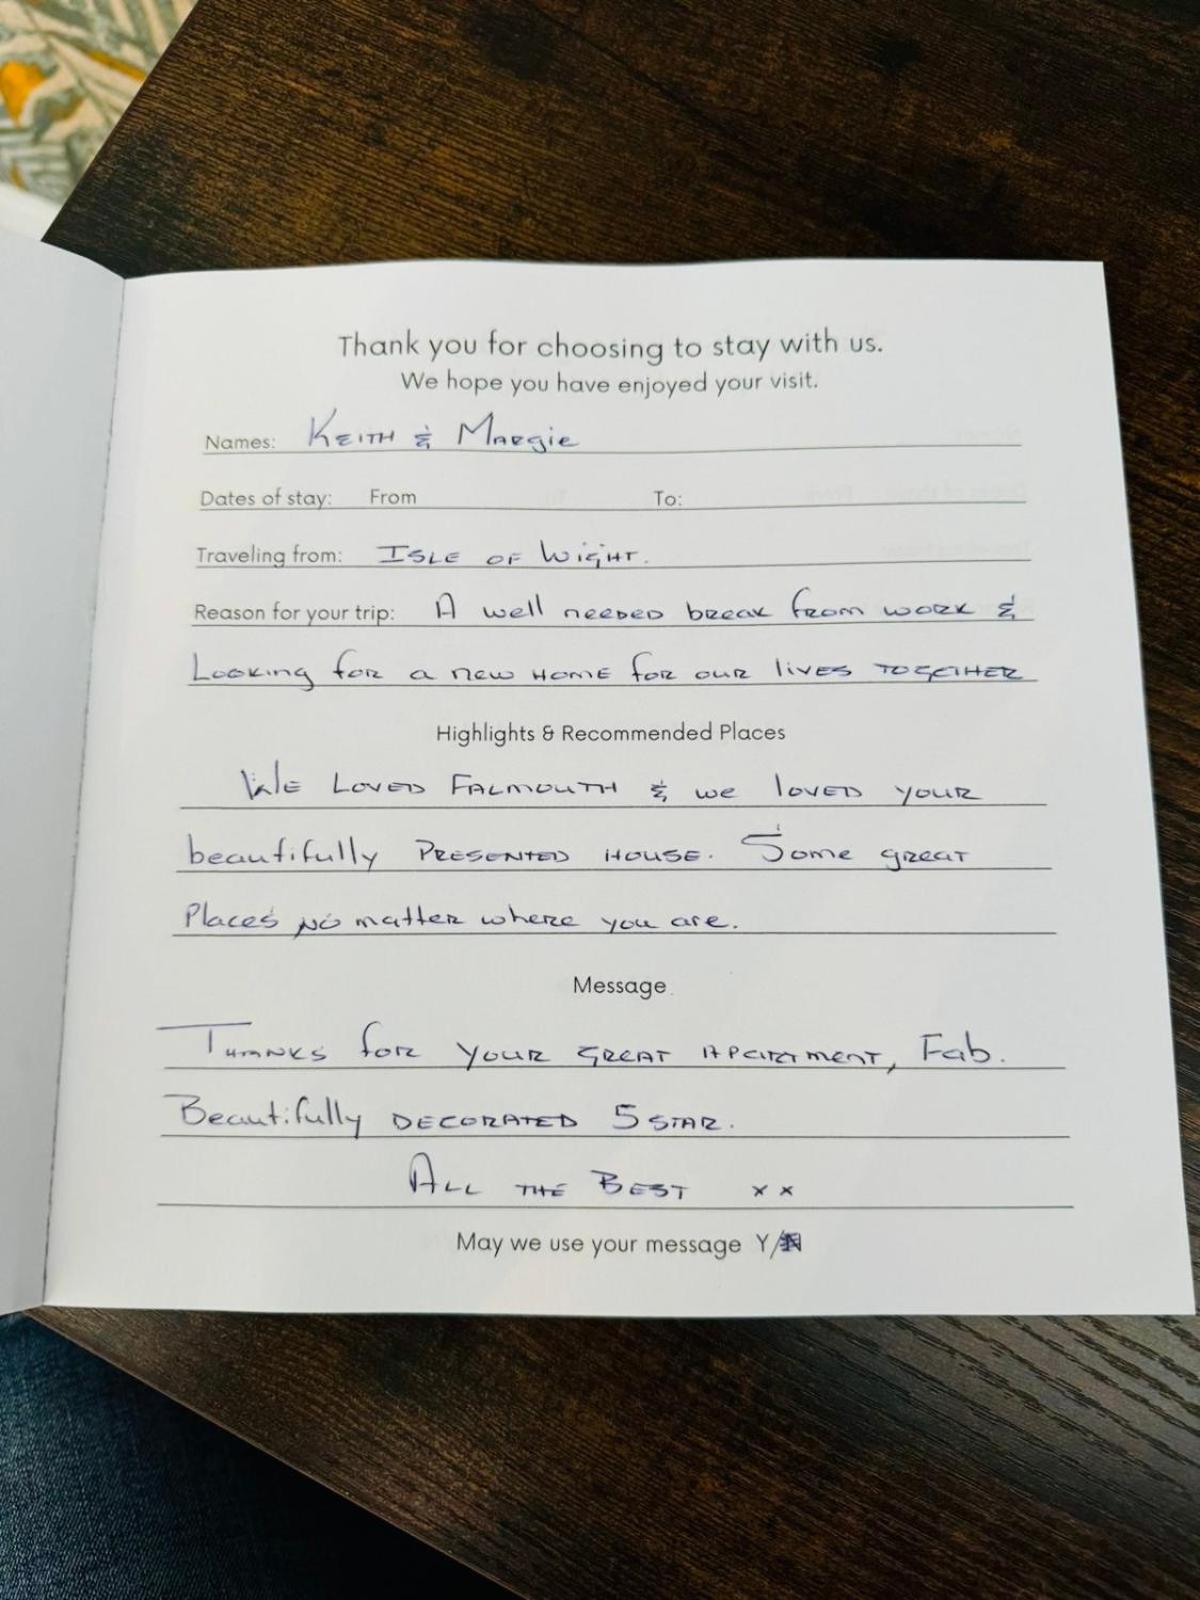 Thank you for choosing to stay with us.
We hope you have enjoyed your visit.
Names: KEITH & Margie
Dates of stay: From To:
Traveling from: ISLE OF WIGHT.
Reason for your trip: A well needed break from work &
Looking for a new HOME for our lives TOGETHER
Highlights & Recommended Places
WE LOVED FALMOUTH & we loved your
beautifully PRESENTED HOUSE. Some great
Places no matter where you are.
Message
THANKS for your GREAT APARTMENT, Fab.
Beautifully DECORATED 5 STAR.
ALL THE BEST x x
May we use your message Y/N